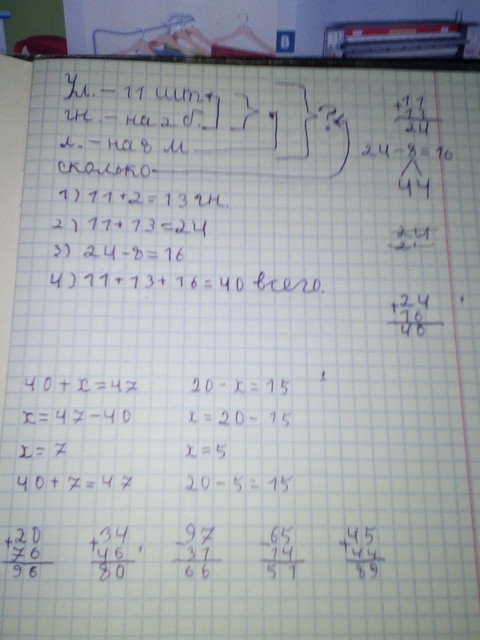 В
Ул. - 11 шт.
гн. - на 2 б.
л. - на 8 м
сколько
?
1) 11+2=13 гн.
2) 11+13=24
3) 24-8=16
4) 11+13+16=40 всего.
+11
24
24-8=16
44
24
+24
16
40
40+x=47
x=47-40
x=7
40+7=47
20-x=15
x=20-15
x=5
20-5=15
+20
76
96
+34
46
80
-97
31
66
-65
14
51
+45
44
89